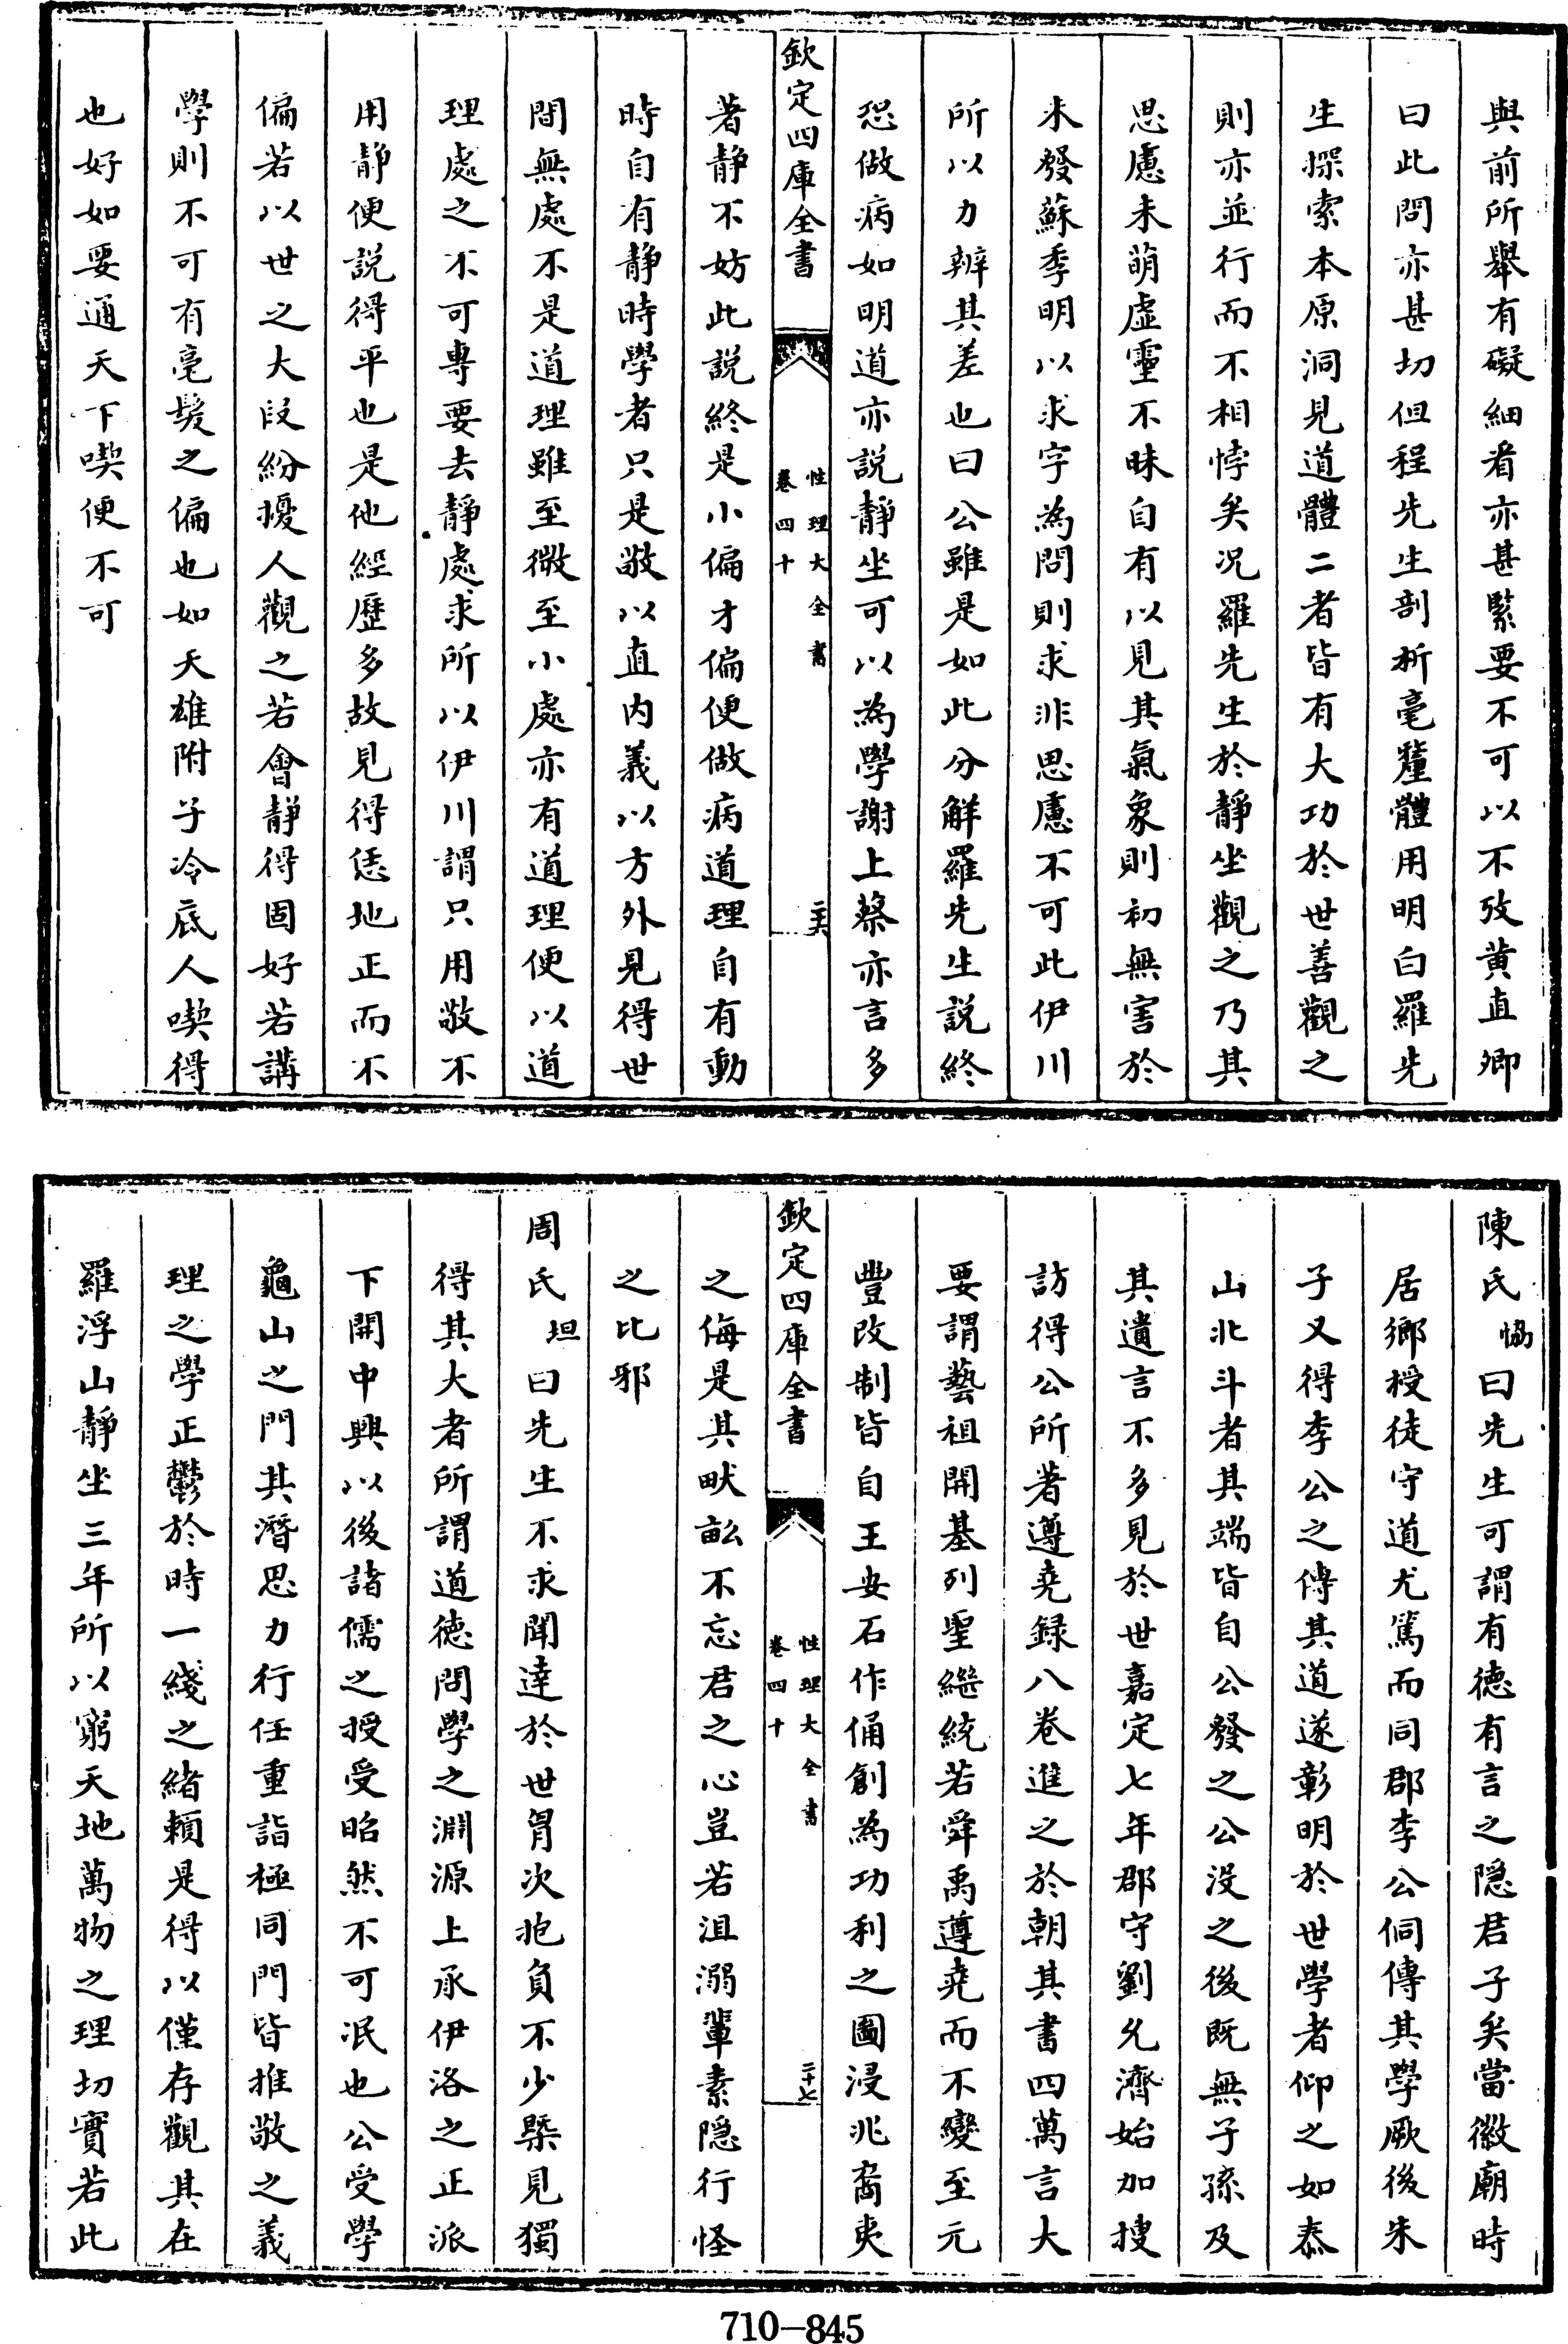 與前所舉有礙細看亦甚緊要不可以不攷黄直卿
曰此問亦甚切但程先生剖析毫釐體用明白羅先
生探索本原洞見道體二者皆有大功於世善觀之
則亦並行而不相悖矣况羅先生於靜坐觀之乃其
思慮未萌虛靈不昧自有以見其氣象則初無害於
未發蘇季明以求字為問則求非思慮不可此伊川
所以力辨其差也曰公雖是如此分解羅先生說終
恐做病如明道亦說靜坐可以為學謝上蔡亦言多
欽定四庫全書
性理大全書
卷四十
二十六
著靜不妨此說終是小偏才偏便做病道理自有動
時自有靜時學者只是敬以直内義以方外見得世
間無處不是道理雖至微至小處亦有道理便以道
理處之不可專要去靜處求所以伊川謂只用敬不
用靜便說得平也是他經歷多故見得恁地正而不
偏若以世之大段紛擾人觀之若會靜得固好若講
學則不可有毫髮之偏也如天雄附子冷底人喫得
也好如要通天下喫便不可
陳氏協曰先生可謂有徳有言之隠君子矣當徽廟時
居鄉授徒守道尤篤而同郡李公侗傳其學厥後朱
子又得李公之傳其道遂彰明於世學者仰之如泰
山北斗者其端皆自公發之公沒之後既無子孫及
其遺言不多見於世嘉定七年郡守劉允濟始加搜
訪得公所著遵堯録八卷進之於朝其書四萬言大
要謂藝祖開基列聖繼統若舜禹遵堯而不變至元
豐改制皆自王安石作俑創為功利之圖浸兆裔夷
欽定四庫全書
性理大全書
卷四十
二十七
之侮是其畎畝不忘君之心豈若沮溺輩素隠行怪
之比邪
周氏坦曰先生不求聞達於世胷次抱負不少槩見獨
得其大者所謂道徳問學之淵源上承伊洛之正派
下開中興以後諸儒之授受昭然不可泯也公受學
龜山之門其潛思力行任重詣極同門皆推敬之義
理之學正鬱於時一綫之緒賴是得以僅存觀其在
羅浮山靜坐三年所以窮天地萬物之理切實若此
710-845